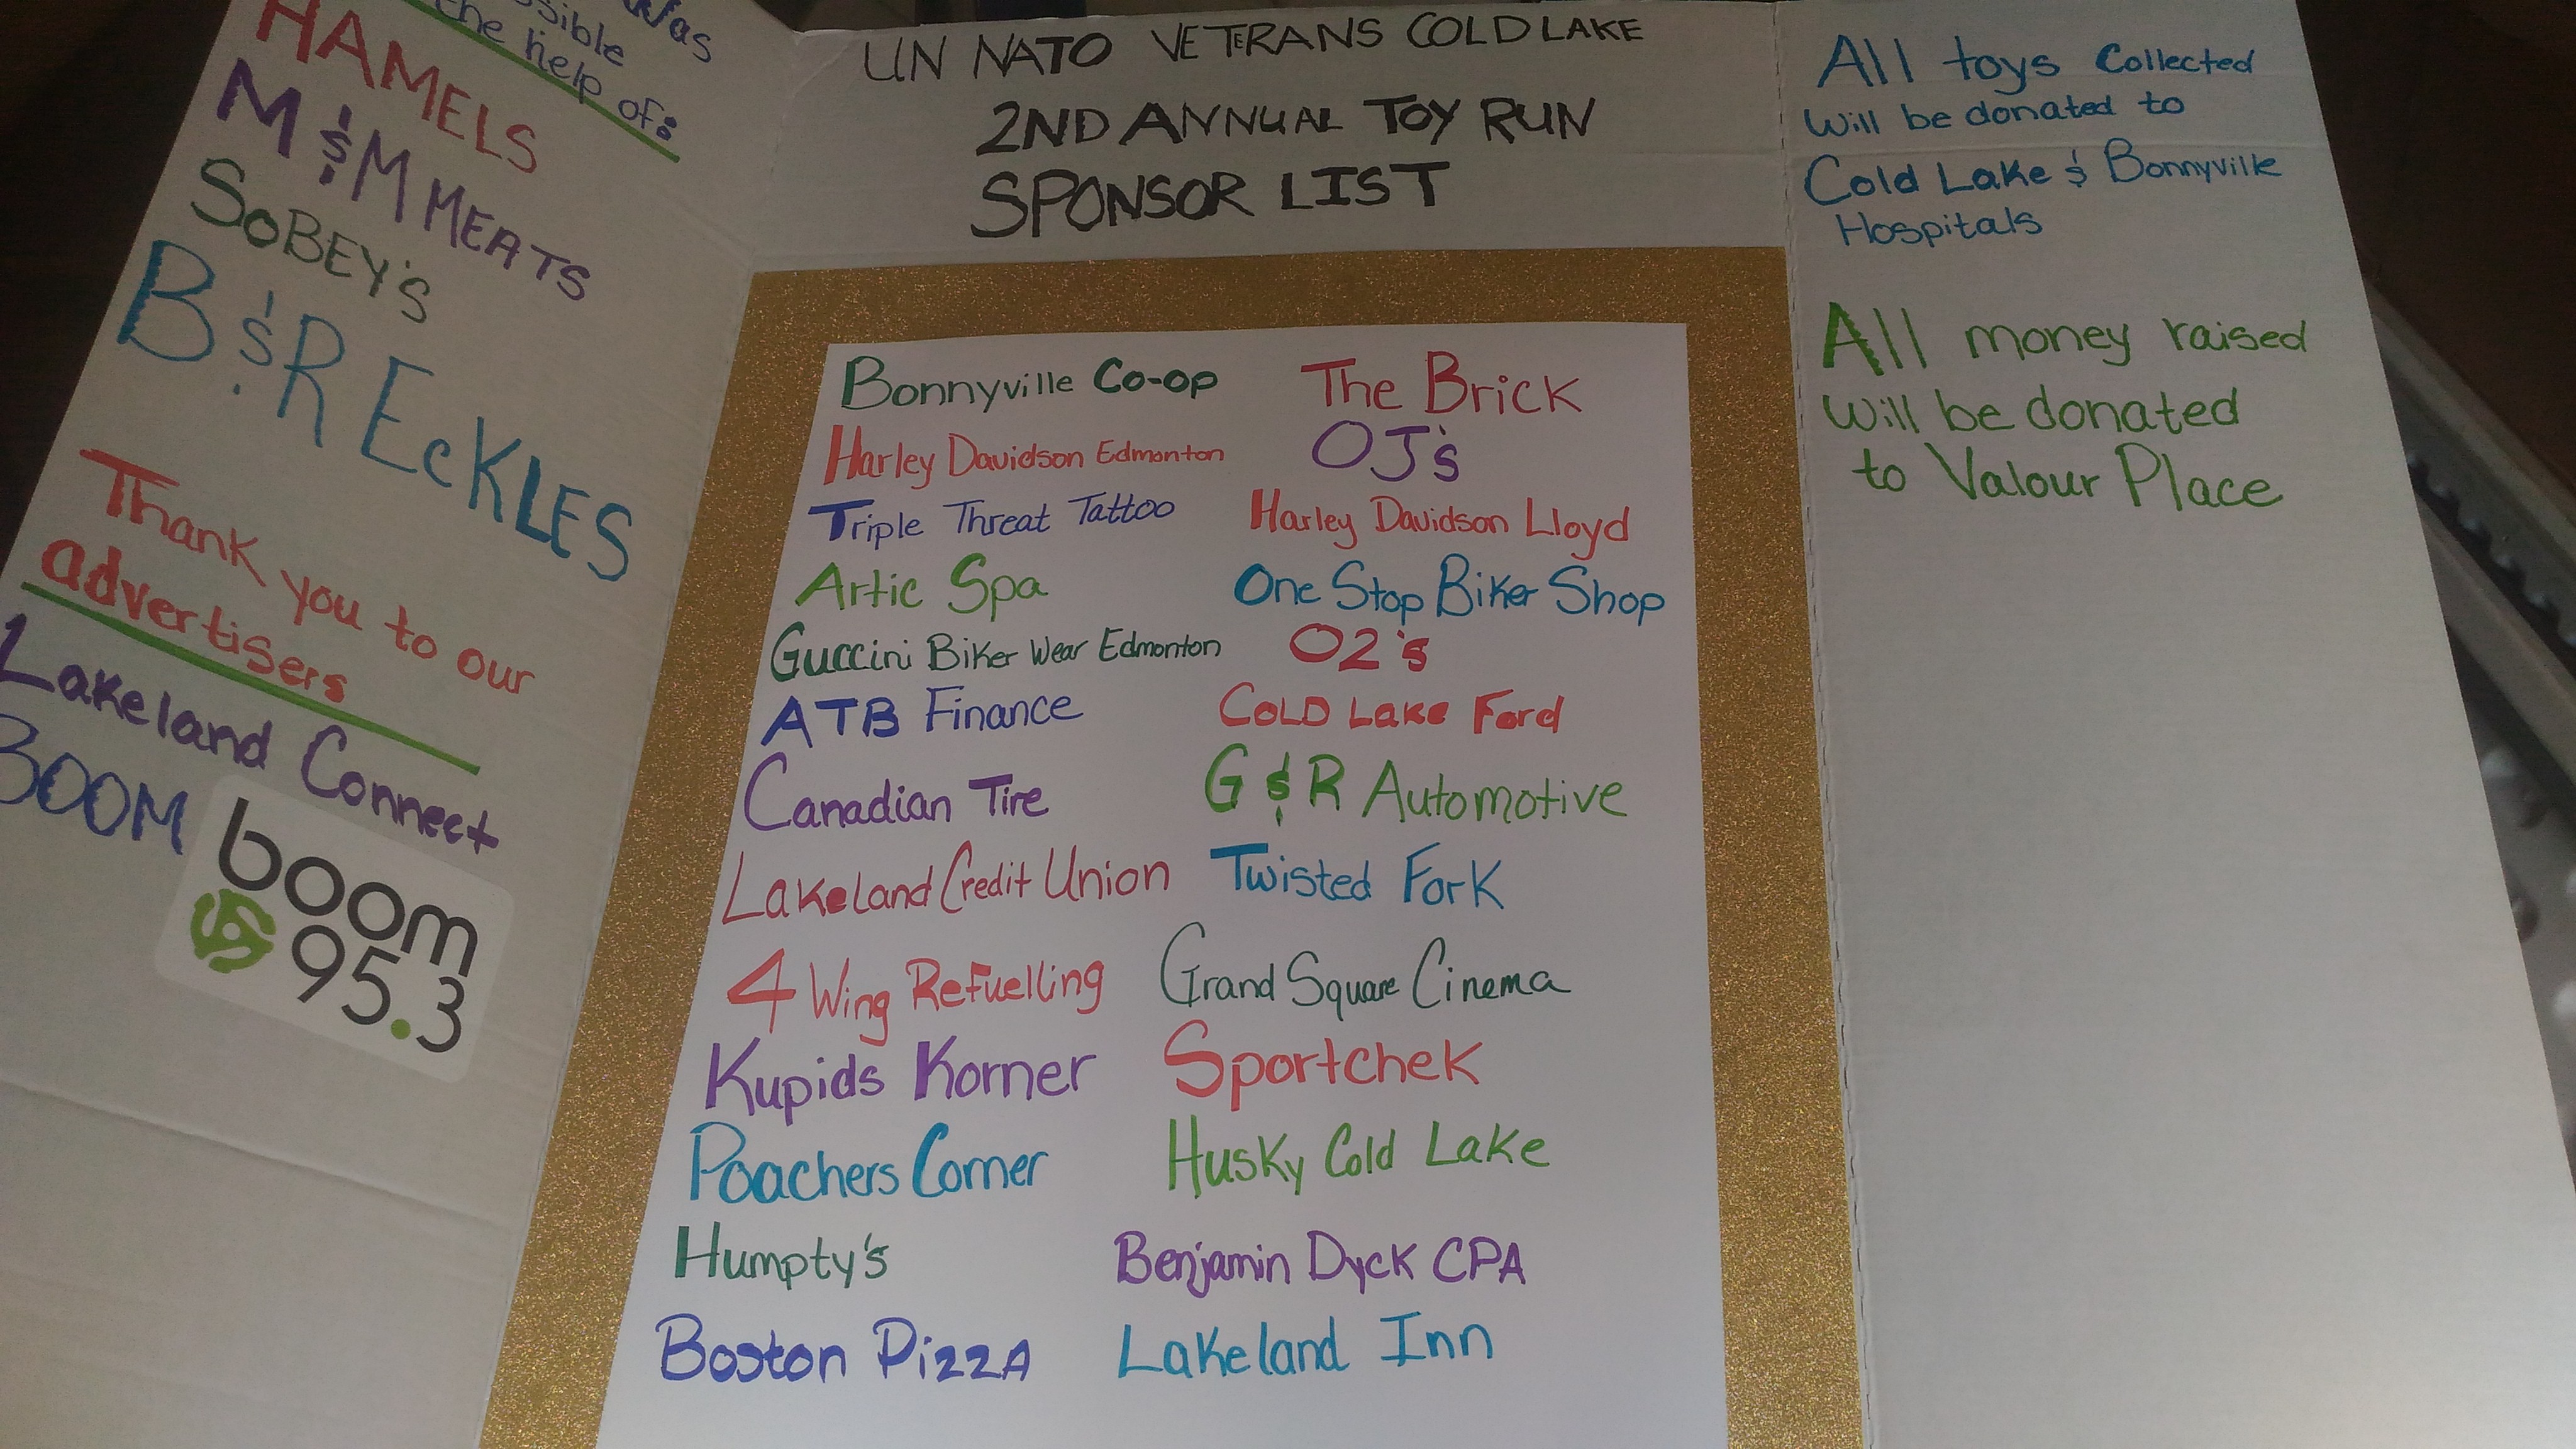 Was
the help of:
HAMELS
M & M MEATS
SOBEY'S
B & R ECKLES
Thank you to our
advertisers
Lakeland Connect
BOOM
boom
95.3
UN NATO VETERANS COLD LAKE
2ND ANNUAL TOY RUN
SPONSOR LIST
Bonnyville Co-op The Brick
Harley Davidson Edmonton OJ's
Triple Threat Tattoo Harley Davidson Lloyd
Artic Spa One Stop Biker Shop
Guccini Biker Wear Edmonton O2's
ATB Finance Cold Lake Ford
Canadian Tire G & R Automotive
Lakeland Credit Union Twisted Fork
4 Wing Refuelling Grand Square Cinema
Kupids Korner Sportchek
Poachers Corner Husky Cold Lake
Humpty's Benjamin Dyck CPA
Boston Pizza Lakeland Inn
All toys Collected
will be donated to
Cold Lake & Bonnyville
Hospitals
All money raised
will be donated
to Valour Place